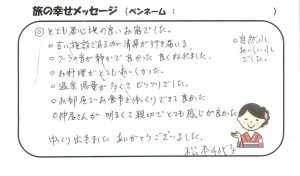 旅の幸せメッセージ (ペンネーム: )
◎とても居心地の良いお宿でした。
○古い施設であるが清掃が行き届いる
○クーラの音が静かで良かった 良くねれました
○お料理がとてもおいしかった。
○温泉湯量が多くてビックリでした
○お部屋でお食事をゆっくりできて良かった
○仲居さんが明るくて親切でとても感じが良かった
ゆっくり出来ました ありがとうございました。
松本千代子
○自然水
おいしい
でした。